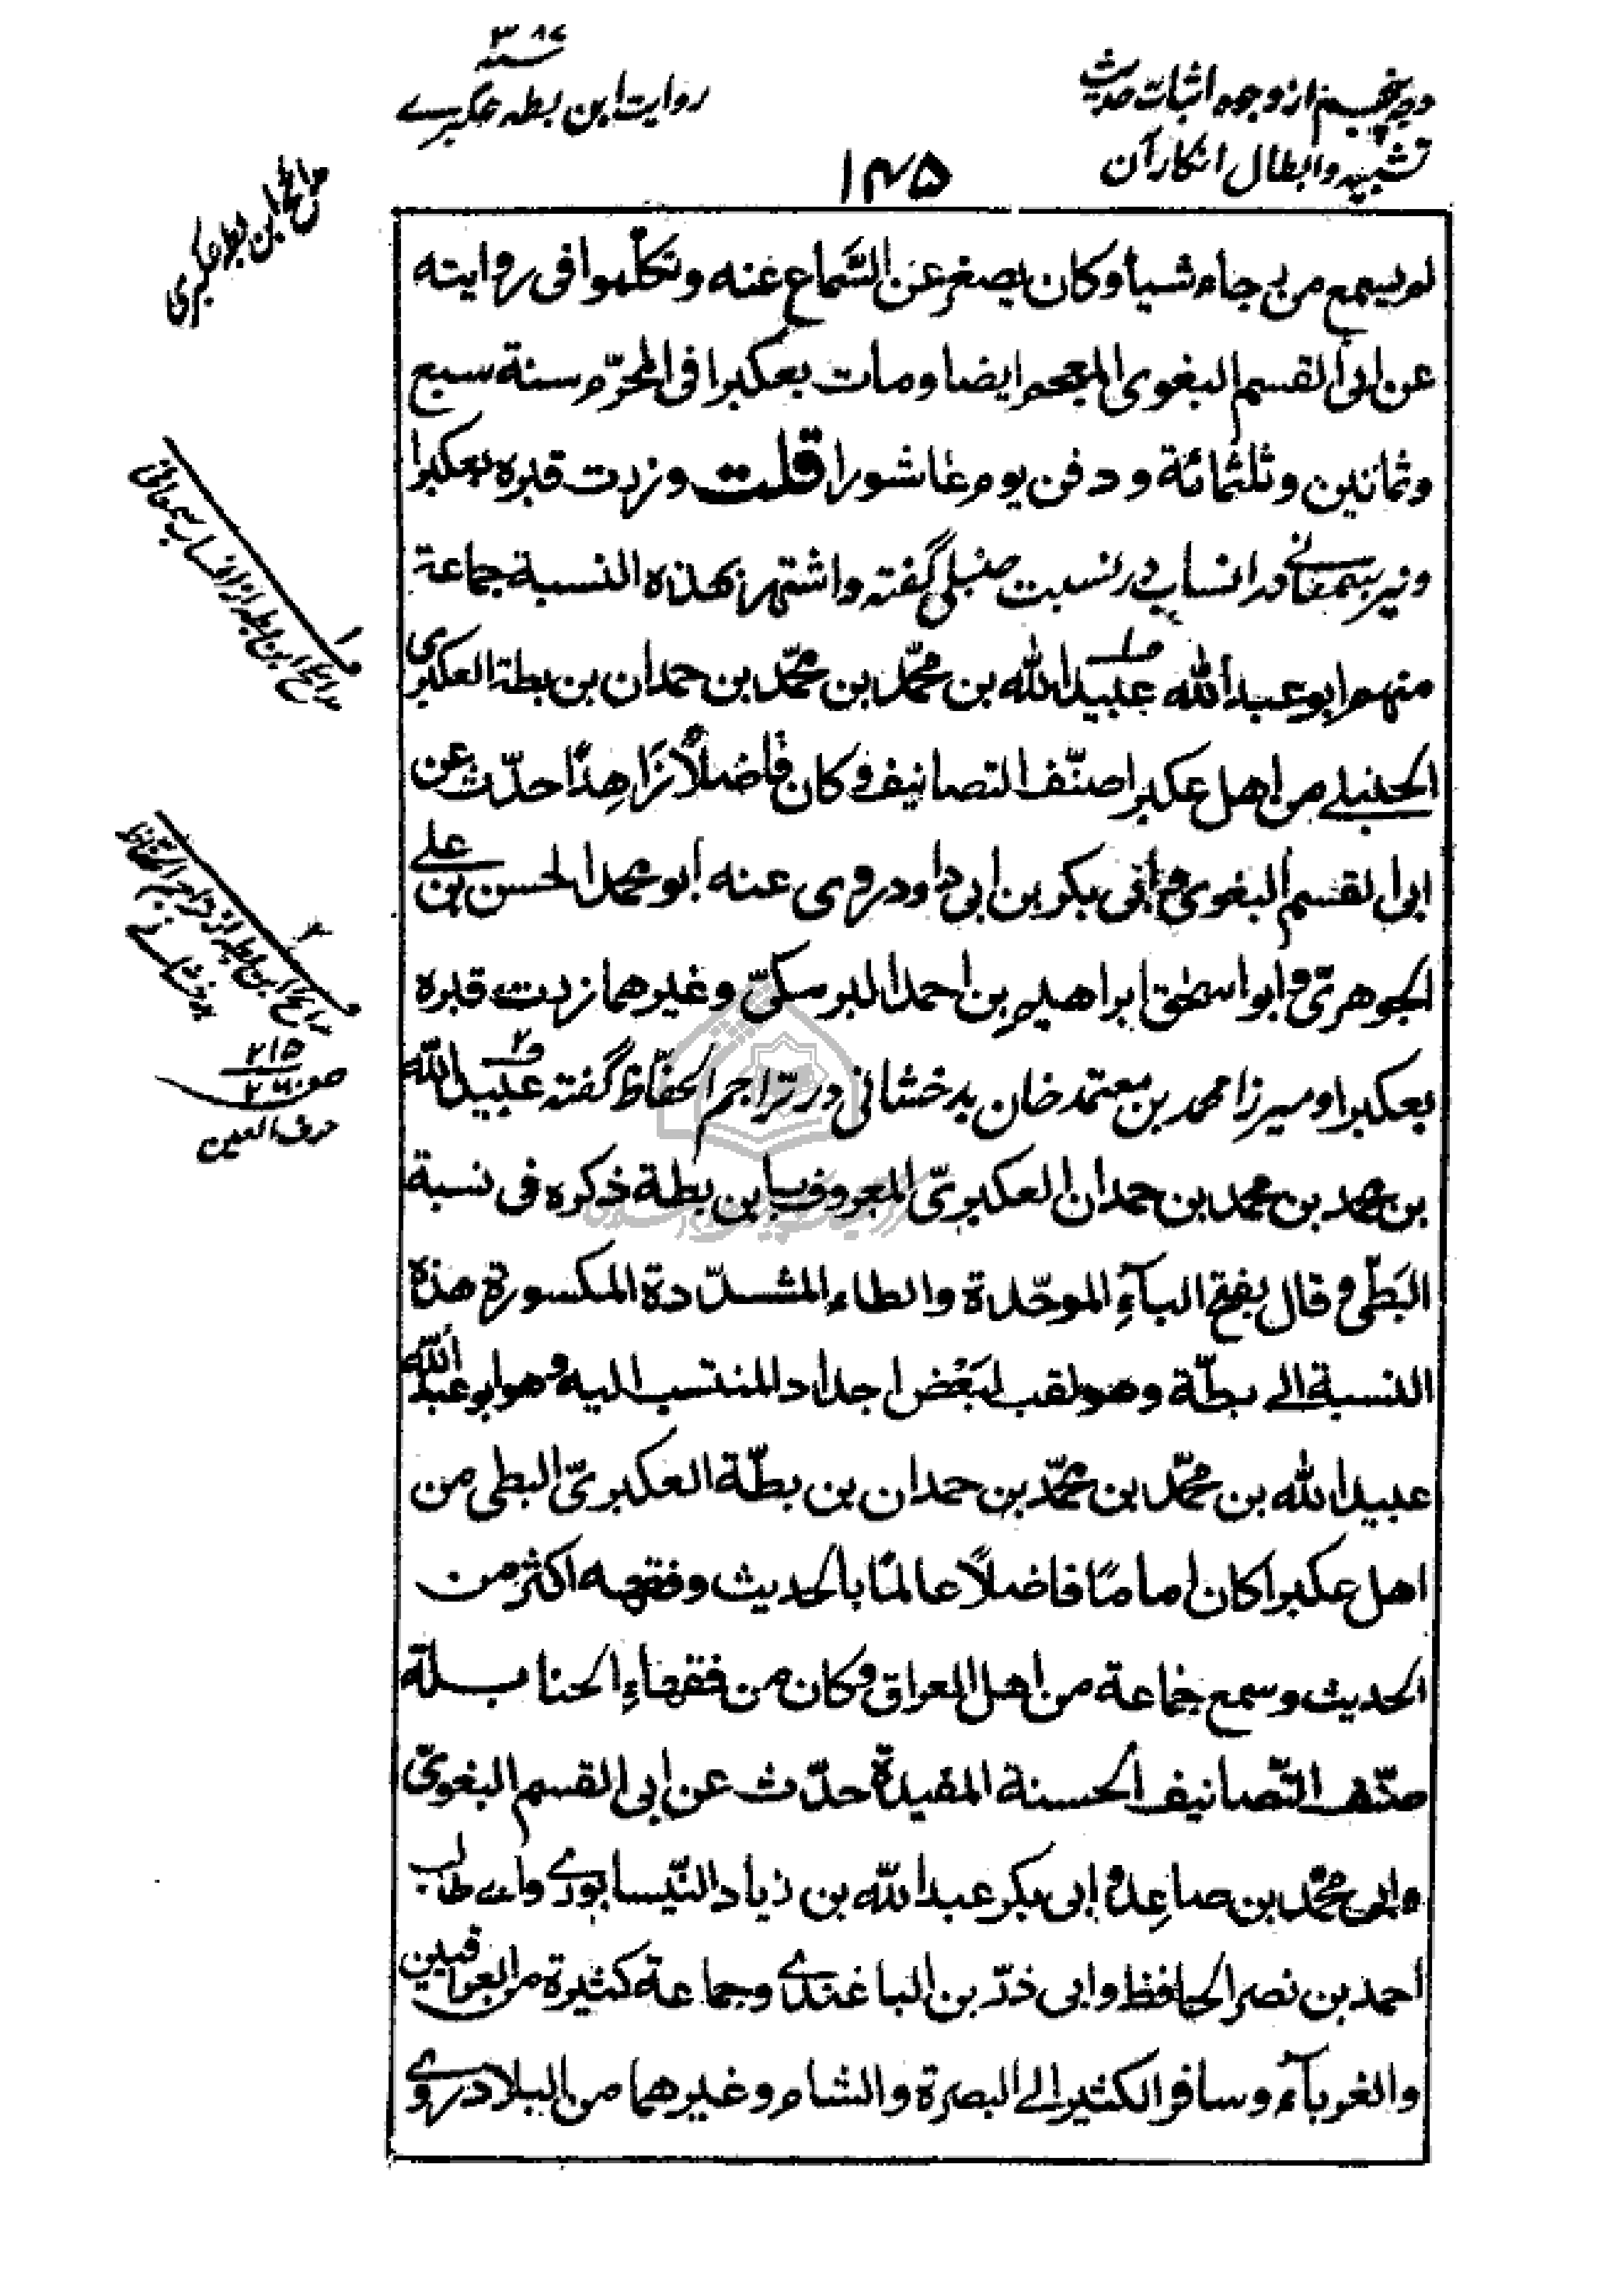 وجه پنجم از وجوه اثبات حدیث
تشبیه و ابطال انکار آن
سنه ۳۸۷
روایت ابن بطه عکبرے
۱۴۵
لم یسمع من رجاء شیأ وکان یصغر عن السَّماع عنه وتکلّموا فی روایته
عن ابی القسم البغوی المعجم ایضا ومات بعکبرا فی المحرّم سنة سبع
وثمانین وثلثمائة ودفن یوم عاشورا قلت وزرت قبره بعکبرا
ونیز سمعانی در انساب در نسبت حنبلی گفته واشتهر بهذه النسبة جماعة
منهم ابو عبد الله عبید الله بن محمّد بن محمّد بن حمدان بن بطة العکبری
الحنبلے من اهل عکبرا صنّف التصانیف وکان فاضلاً زاهدًا حدّث عن
ابی القسم البغوی وابی بکر بن ابی داود روی عنه ابو محمد الحسن بن علے
الجوهریّ وابو اسحٰق ابراهیم بن احمد البرمکیّ وغیرهما زرت قبره
بعکبرا و میرزا محمد بن معتمد خان بدخشانی در تراجم الحفّاظ گفته عبید الله
بن محمد بن محمد بن حمدان العکبریّ المعروف بابن بطة ذکره فی نسبة
البَطّی وقال بفتح البآء الموحّدة والطاء المشدّدة المکسورة هذه
النسبة الی بطّة وهو لقب لبَعْض اجداد المنتسب الیه وهو ابو عبد الله
عبید الله بن محمّد بن محمّد بن حمدان بن بطّة العکبریّ البطی من
اهل عکبرا کان امامًا فاضلاً عالمًا بالحدیث وفقهه اکثر من
الحدیث وسمع جماعة من اهل العراق وکان من فقهاء الحنابلة
صنّف التّصانیف الحسنة المفیدة حدّث عن ابی القسم البغویّ
وابی محمّد بن صاعد وابی بکر عبد الله بن زیاد النّیسابورے وابے طالب
أحمد بن نصر الحافظ وابی ذرّ بن الباغندے وجماعة کثیرة من العراقیین
والغربآء وسافر الکثیر الے البصرة والشام وغیرهما من البلاد روے
مدائح ابن بطه عکبری
۱
مدائح ابن بطه از انساب سمعانی
۲
مدائح ابن بطه از تراجم الحفاظ
بدخشانے
۲۱۵
حرف العین